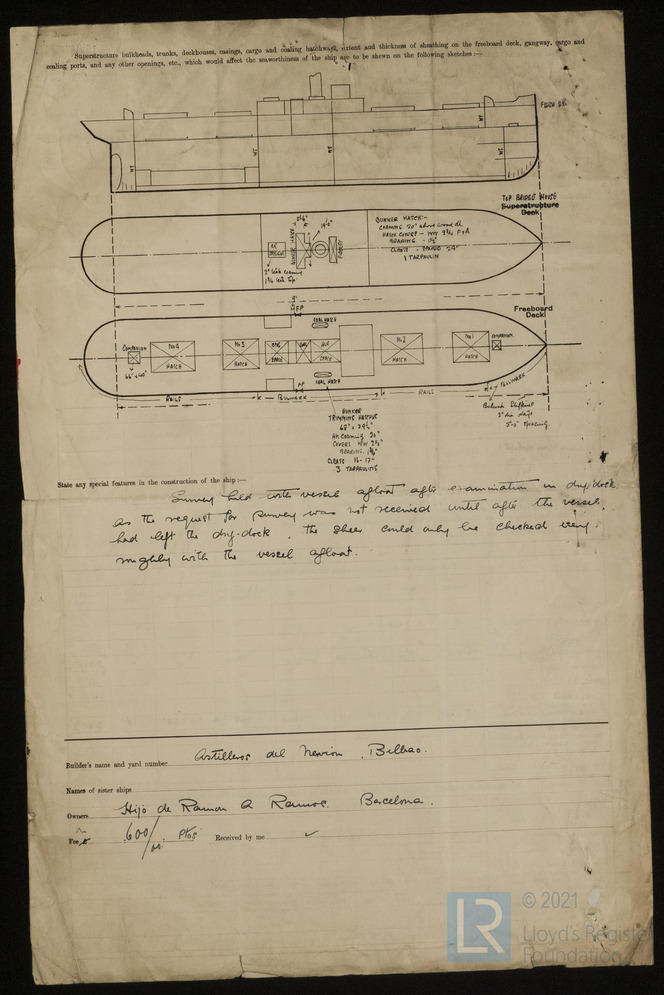 Superstructure bulkheads, trunks, deckhouses, casings, cargo and coaling hatchways, extent and thickness of sheathing on the freeboard deck, gangway, cargo and
coaling ports, and any other openings, etc., which would affect the seaworthiness of the ship are to be shewn on the following sketches:—
WT
WT
WT
WT
WT
TOP BRIDGE HOUSE
Superstructure
Deck
BUNKER HATCH:-
COAMING 30" above wood dk
HATCH COVERS - W.W. 2¾
BEARING - 1½"
CLEATS - SPACED 24"
1 TARPAULIN
BUNKER HATCH
3" teak coaming
Freeboard
Deck
FP
COAL HATCH
COMPANION
No 4
HATCH
No 3
HATCH
ENG
SPACE
BLR
SPACE
No 2
HATCH
No 1
HATCH
COMPANION
FP
COAL HATCH
RAILS
BULWARK
RAILS
BULWARK
BUNKER
TRIMMING HATCHES
Ht. Coaming 30"
COVERS WW 2½"
BEARING 1¾"
CLEATS 16-17"
3 TARPAULINS
State any special features in the construction of the ship:—
Survey held with vessel afloat after examination in dry dock
as the request for survey was not received until after the vessel
had left the dry-dock, the sheer could only be checked very
roughly with the vessel afloat.
Builder's name and yard number Astilleros del Nervion, Bilbao.
Names of sister ships
Owners Hijo de Ramon A Ramos. Barcelona.
Fee 600/ Ptas Received by me
LR
© 2021
Lloyd's Register
Foundation